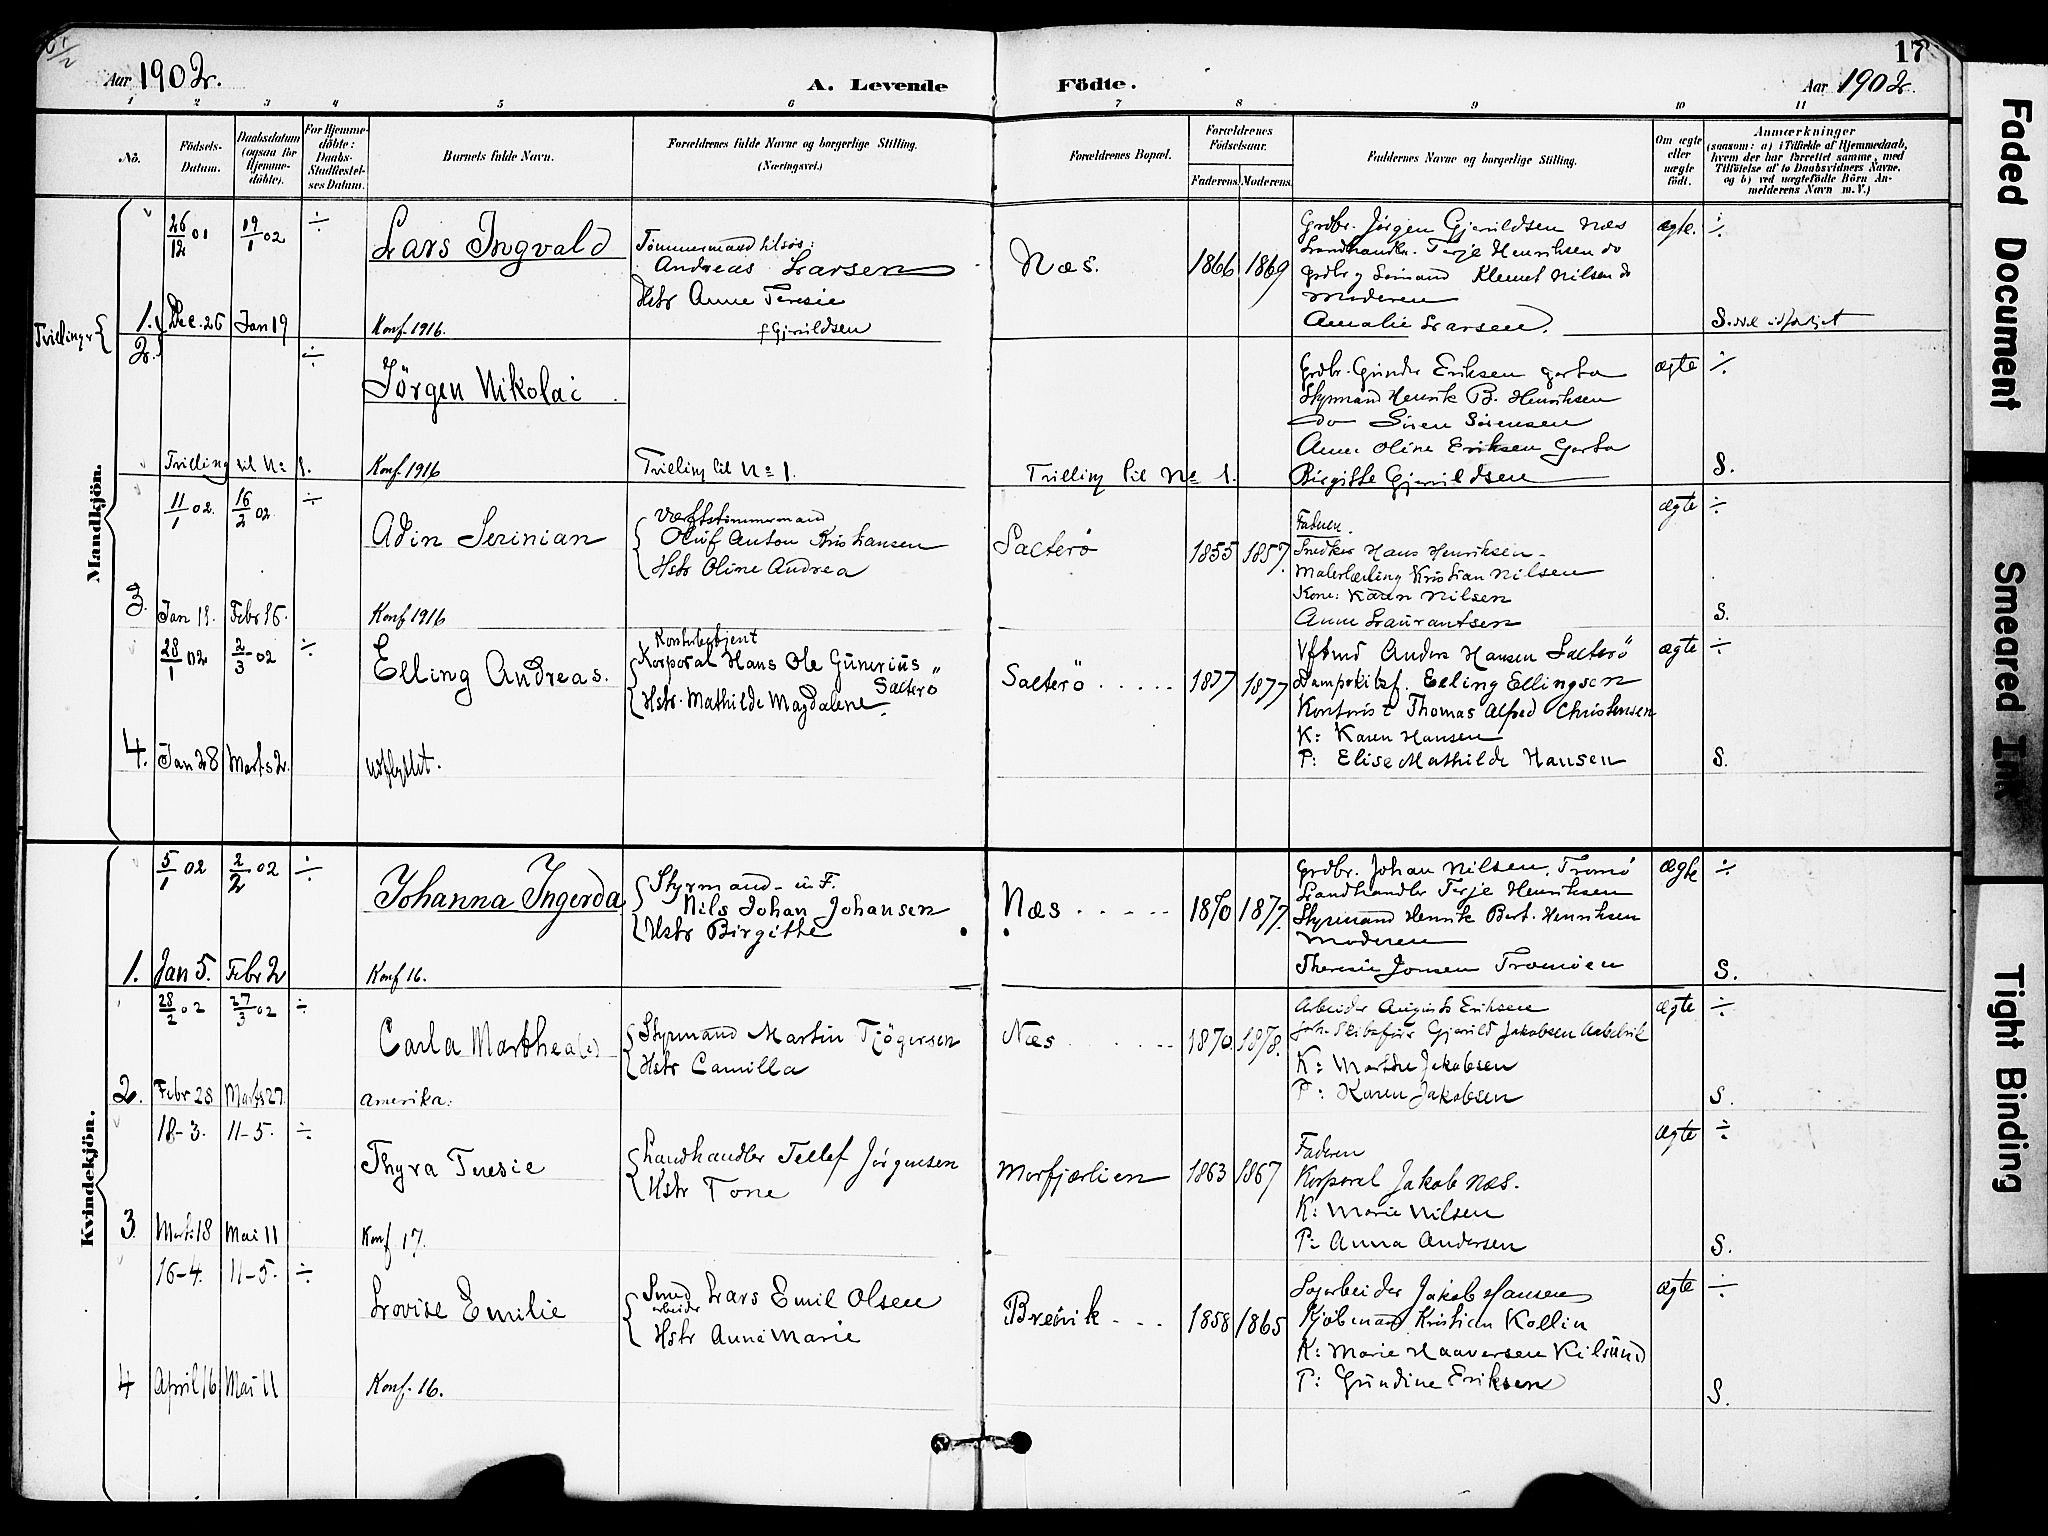 Aar 1902.
A. Levende
Födte.
17
Aar 1902.
1 2 3 4 5 6 7 8 9 10 11
No.
Födsels-
Datum.
Daabsdatum
(ogsaa for
Hjemme-
döbte).
For Hjemme-
döbte:
Daabs-
Stadfæstel-
ses Datum.
Barnets fulde Navn.
Forældrenes fulde Navne og borgerlige Stilling.
(Næringsvei.)
Forældrenes Bopæl.
Forældrenes
Födselsaar.
Faderens. Moderens.
Faddernes Navne og borgerlige Stilling.
Om ægte
eller
uægte
født.
Anmærkninger
(saasom: a) i Tilfælde af Hjemmedaab,
hvem der har forrettet samme, med
Tilföielse af to Daabsvidners Navne,
og b) ved uægtefödte Börn An-
melderens Navn m. V.)
Mandkjön.
Tvillinger
1.
26/12 01
19/1 02
÷
Lars Ingvald
Tömmermand tilsös:
Andreas Larsen
Hstr Anne Teresie
f Gjeruldsen
Næs.
1866
1869
Grdbr. Jörgen Gjeruldsen Næs
Landhandler. Terje Henriksen do
Grdbr og Sömand Klemet Nilsen do
Moderen
Amalie Larsen.
ægte.
÷
Dec. 26
Jan 19
Konf. 1916.
S.
2.
÷
Jörgen Nikolai
Grdbr. Gunder Eriksen Garta
Styrmand Henrik B. Henriksen
do Sören Sörensen
Anne Oline Eriksen Garta
Birgitte Gjeruldsen
ægte
÷
Tvilling til No 1.
Konf. 1916
Tvilling til No 1.
Tvilling til No 1.
S.
3.
11/1 02.
16/2 02.
÷
Adin Serinian
Værftstömmermand
Oluf Anton Kristiansen
Hstr Oline Andrea
Salterö
1855
1857.
Faderen.
Snedker Hans Henriksen
Malerlærling Kristian Nilsen
Kone: Karen Nilsen
Anne Laurantsen
ægte
÷
Jan 11.
Febr 16.
Konf 1916
S.
4.
28/1 02
2/3 02
÷
Elling Andreas.
Korporal Hans Ole Gunerius
Salterö
Hstr. Mathilde Magdalene
Salterö
1877
1877
Anders Hansen Salterö
Elling Ellingsen
Kontorist Thomas Alfred Christensen
K: Karen Hansen
P: Elise Mathilde Hansen
ægte
÷
Jan 28
Marts 2.
udflyttet.
S.
Kvindekjön.
1.
5/1 02
2/2 02
÷
Johanna Ingerda
Styrmand
Nils Johan Johansen
Hstr Birgithe
Næs
1870
1877.
Grdbr. Johan Nilsen, Tromö
Landhandler Terje Henriksen
Styrmand Henrik Bert. Henriksen
Moderen
Theresie Jonsen Tromöen
ægte
÷
Jan 5.
Febr 2
Konf 16.
S.
2.
28/2 02
27/3 02
÷
Carla Marthea
Styrmand Martin Tjögersen
Hstr Camilla
Næs
1870.
1878.
Arbeider August Eriksen
Gjeruld Jakobsen
K: Marthe Jakobsen
P: Karen Jakobsen
ægte
÷
Febr 28
Marts 27
Amerika.
S.
3.
18-3.
11-5.
÷
Thyra Teresie
Landhandler Tellef Jörgensen
Hstr Tone
Morfjærlien
1863
1867
Faderen
Korporal Jakob Næs.
K: Marie Nilsen
P: Anna Andersen
ægte
÷
Marts 18
Mai 11
Konf 17.
S.
4
16-4.
11-5.
÷
Lovise Emilie
Smed
arbeider
Lars Emil Olsen
Hstr Anne Marie
Brevik
1858
1865
Jakob Hansen
Kjöbmand Kristian Kollin
K: Marie Haaversen Kilsund
P: Gundine Eriksen
ægte
÷
April 16
Mai 11
Konf. 16.
S.
Faded Document
Smeared Ink
Tight Binding